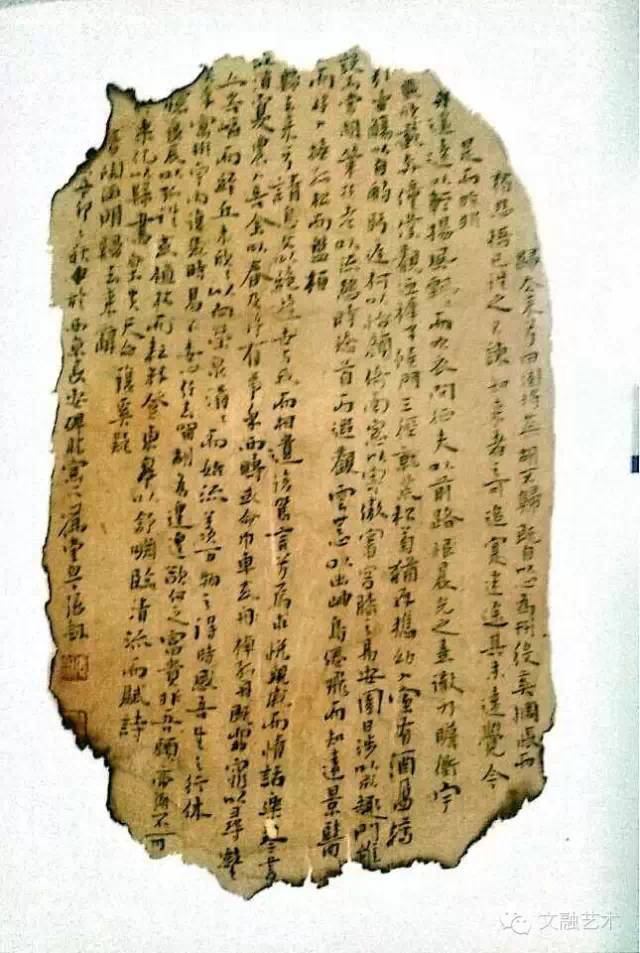 歸去來兮田園將蕪胡不歸既自以心為形役奚惆悵而
獨悲悟已往之不諫知來者之可追寔迷途其未遠覺今
是而昨非
舟遙遙以輕揚風飄飄而吹衣問征夫以前路恨晨光之熹微乃瞻衡宇
載欣載奔僮僕觀迎稚子候門三徑就荒松菊猶存攜幼入室有酒盈樽
引壺觴以自酌眄庭柯以怡顏倚南窗以寄傲審容膝之易安園日涉以成趣門雖
設而常關策扶老以流憩時矯首而遐觀雲無心以出岫鳥倦飛而知還景翳
撫孤松而盤桓
歸去來兮請息交以絕遊世與我而相遺復駕言兮焉求悅親戚而情話樂琴書
以消憂農人告余以春及將有事乎西疇或命巾車或棹孤舟既窈窕以尋壑
崎嶇而經丘木欣欣以向榮泉涓涓而始流羨萬物之得時感吾生之行休
寓形宇內復幾時曷不委心任去留胡為遑遑欲何之富貴非吾願帝鄉不可
懷良辰以孤往或植杖而耘耔登東皋以舒嘯臨清流而賦詩
乘化以歸盡樂夫天命復奚疑
晉陶淵明歸去來辭
辛卯之秋日於西京長安碑林
文融艺术